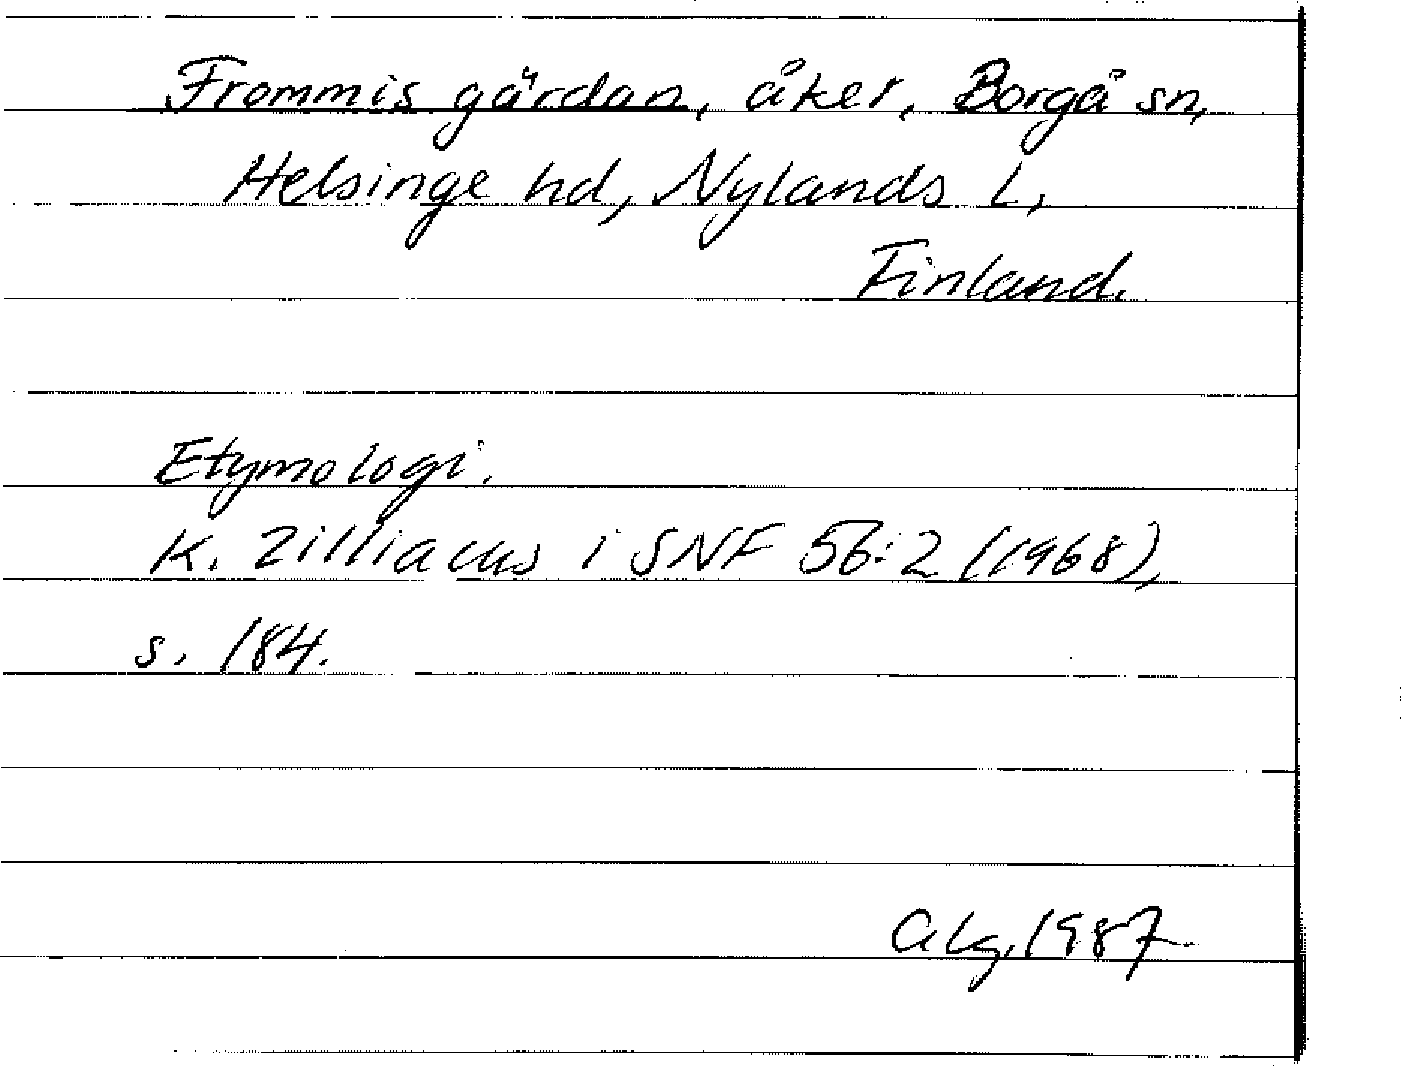 Frommis gärdan, åker, Borgå sn,
Helsinge hd, Nylands l,
Finland.
Etymologi.
K. Zilliacus i SNF 56:2 (1968),
s. 184.
Alg. 1987